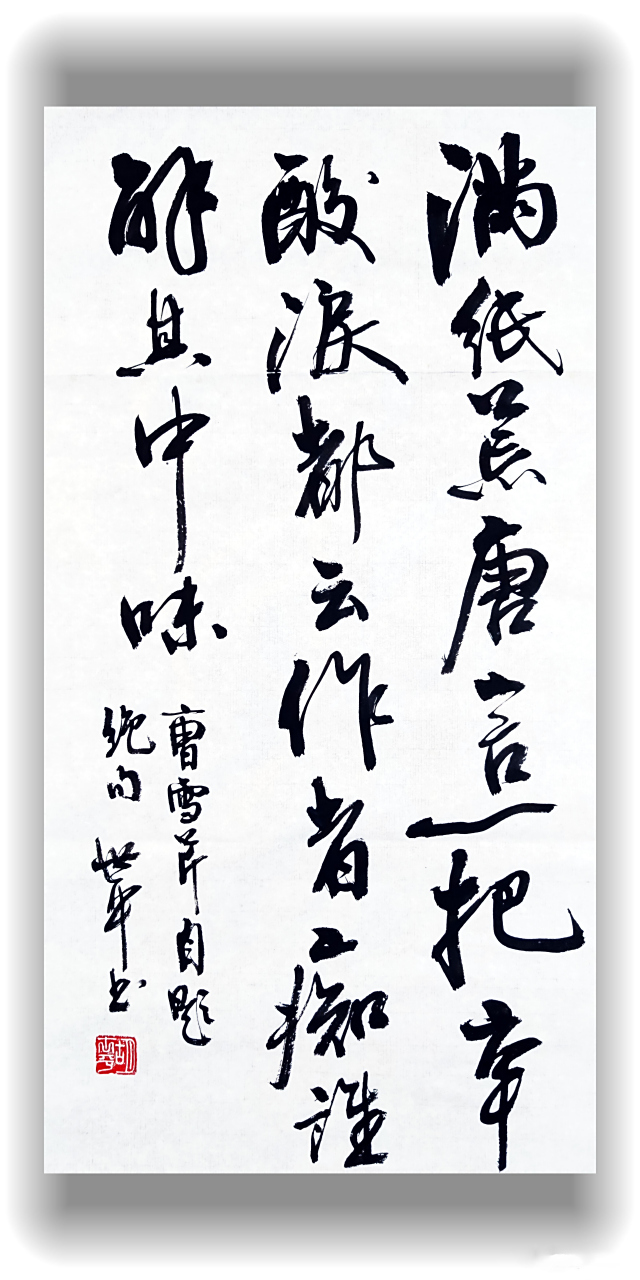 满紙荒唐言一把辛
酸淚都云作者痴誰
解其中味
曹雪芹自题
绝句 世军书